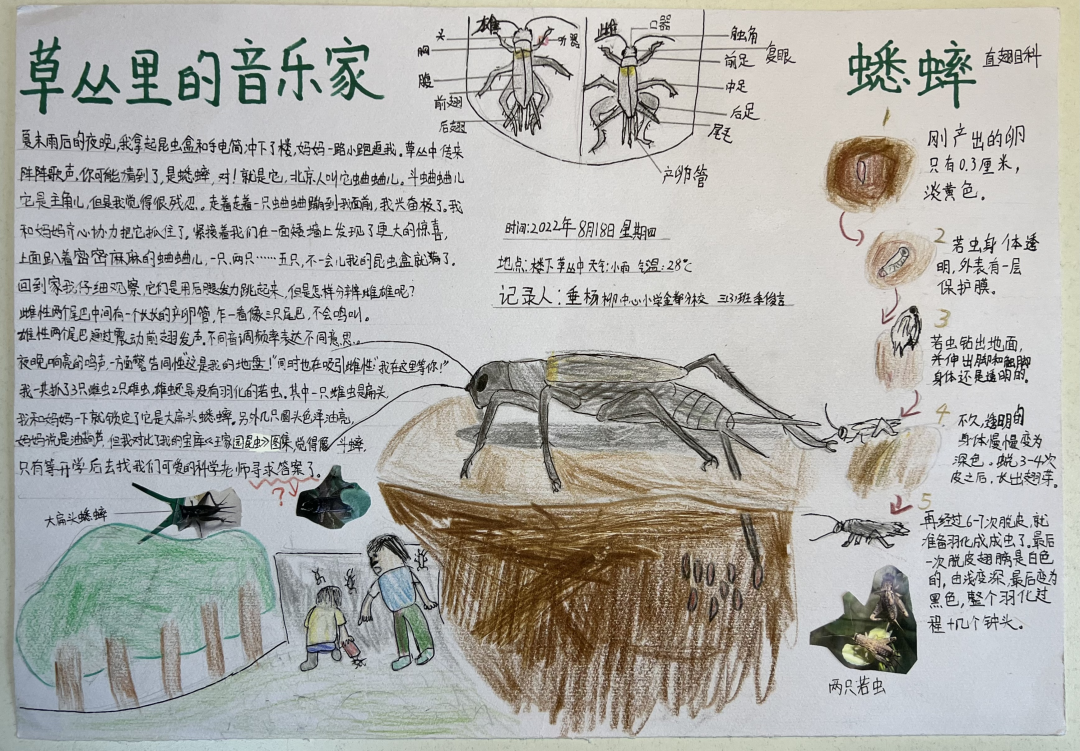 草丛里的音乐家
夏末雨后的夜晚,我拿起昆虫盒和手电筒,冲下了楼,妈妈一路小跑追我。草丛中传来
阵阵歌声。你可能猜到了,是蟋蟀,对!就是它,北京人叫它蛐蛐儿。斗蛐蛐儿
它是主角儿,但是我觉得很残忍。走着走着一只蛐蛐蹦到我面前,我兴奋极了。我
和妈妈齐心协力把它抓住了。紧接着我们在一面矮墙上发现了更大的惊喜,
上面趴着密密麻麻的蛐蛐儿,一只,两只……五只,不一会儿我的昆虫盒就满了。
回到家我仔细观察,它们是用后腿发力跳起来,但是怎样分辨雌雄呢?
雌性两个尾巴中间有一个长长的产卵管,乍一看像三只尾巴,不会鸣叫。
雄性两个尾巴通过震动前翅发声。不同音调频率表达不同意思。
夜晚,响亮的鸣声,一方面警告同性“这是我的地盘!”同时也在吸引雌性:“我在这里等你!”
我一共抓了3只雌虫2只雄虫,雄蚊还是没有羽化的若虫。其中一只雌虫扁头,
我和妈妈一下就锁定了它是大扁头蟋蟀。另外几只圆头色泽油亮,
妈妈说是油葫芦,但我对比了我的宝库《王家国昆虫》图集,觉得像斗蟀,
只有等开学后去找我们可爱的科学老师寻求答案了。
?
大扁头蟋蟀
雄
头
胸
腹
前翅
后翅
听器
雌
口器
触角
复眼
前足
中足
后足
尾毛
产卵管
时间:2022年8月18日 星期四
地点:楼下草丛中 天气:小雨 气温:28℃
记录人:垂杨柳中心小学金都分校 三(3)班 李俊言
蟋蟀 直翅目科
1
刚产出的卵
只有0.3厘米,
淡黄色。
2
若虫身体透
明,外表有一层
保护膜。
3
若虫钻出地面,
并伸出脚和触脚
身体还是透明的。
4
不久,透明的
身体慢慢变为
深色。蜕3-4次
皮之后,长出翅芽。
5
再经过6-7次脱皮,就
准备羽化成成虫了,最后
一次脱皮翅膀是白色
的,由浅变深,最后变为
黑色,整个羽化过
程十几个钟头。
两只若虫